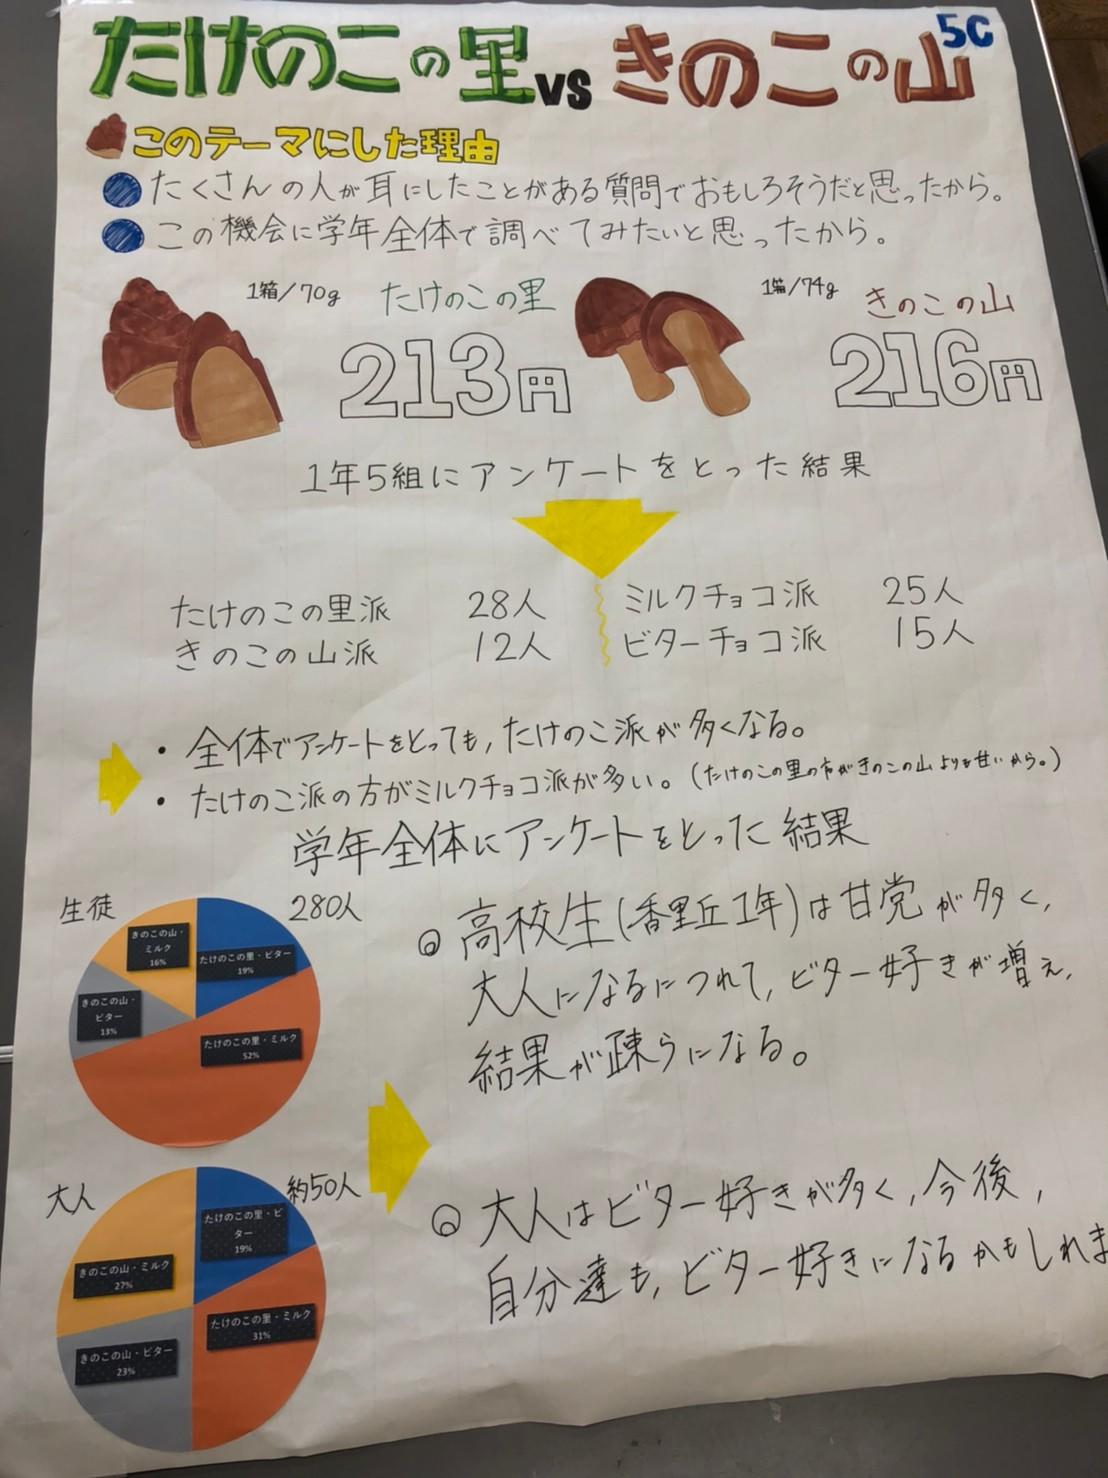 たけのこの里vsきのこの山 5C
このテーマにした理由
たくさんの人が耳にしたことがある質問でおもしろそうだと思ったから。
この機会に学年全体で調べてみたいと思ったから。
1箱/70g たけのこの里
213円
1箱/74g きのこの山
216円
1年5組にアンケートをとった結果
たけのこの里派 28人
きのこの山派 12人
ミルクチョコ派 25人
ビターチョコ派 15人
・全体でアンケートをとっても,たけのこ派が多くなる。
・たけのこ派の方がミルクチョコ派が多い。(たけのこの里の方がきのこの山よりも甘いから。)
学年全体にアンケートをとった結果
生徒 280人
きのこの山・
ミルク
16%
たけのこの里・ビター
19%
きのこの山・
ビター
13%
たけのこの里・ミルク
52%
◎高校生(香里丘1年)は甘党が多く,
大人になるにつれて,ビター好きが増え,
結果が疎らになる。
大人 約50人
たけのこの里・ビ
ター
19%
きのこの山・ミルク
27%
たけのこの里・ミルク
31%
きのこの山・ビター
23%
◎大人はビター好きが多く,今後,
自分達も,ビター好きになるかもしれま